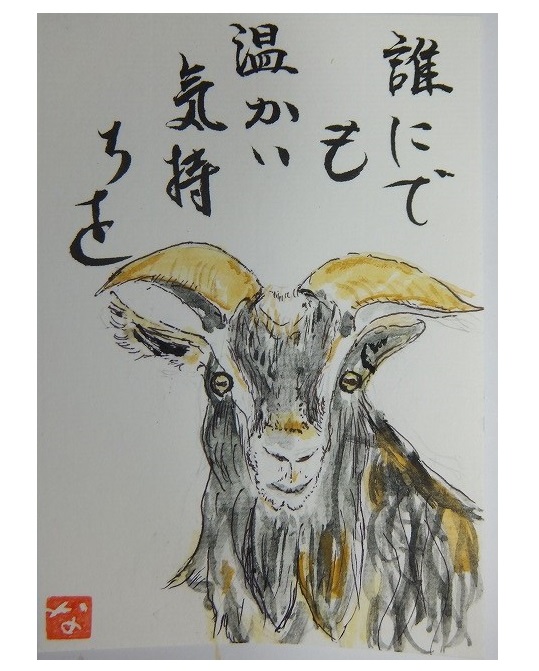 誰にで
も
温かい
気持
ちを
な